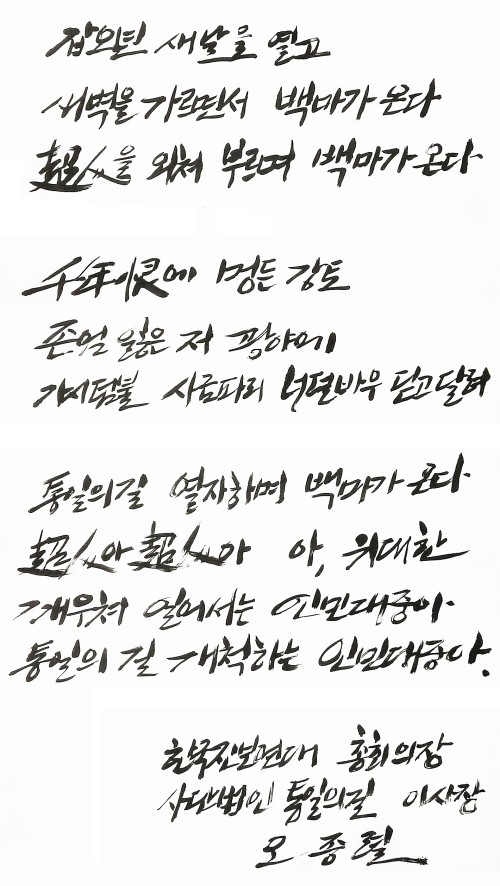 잠오틴 새날을 열고
새벽을 가르면서 백마가 온다
超人을 외쳐 부르며 백마가 온다
千年恨에 멍든 강토
존엄 잃은 저 광야에
가시덤불 사금파리 너펀바우 딛고 달려
통일의 길 열자하며 백마가 온다
超人아 超人아 아, 위대한
깨우쳐 일어서는 인민대중아
통일의 길 개척하는 인민대중아.
한국진보연대 총회의장
사단法인 통일의길 이사장
오종렬